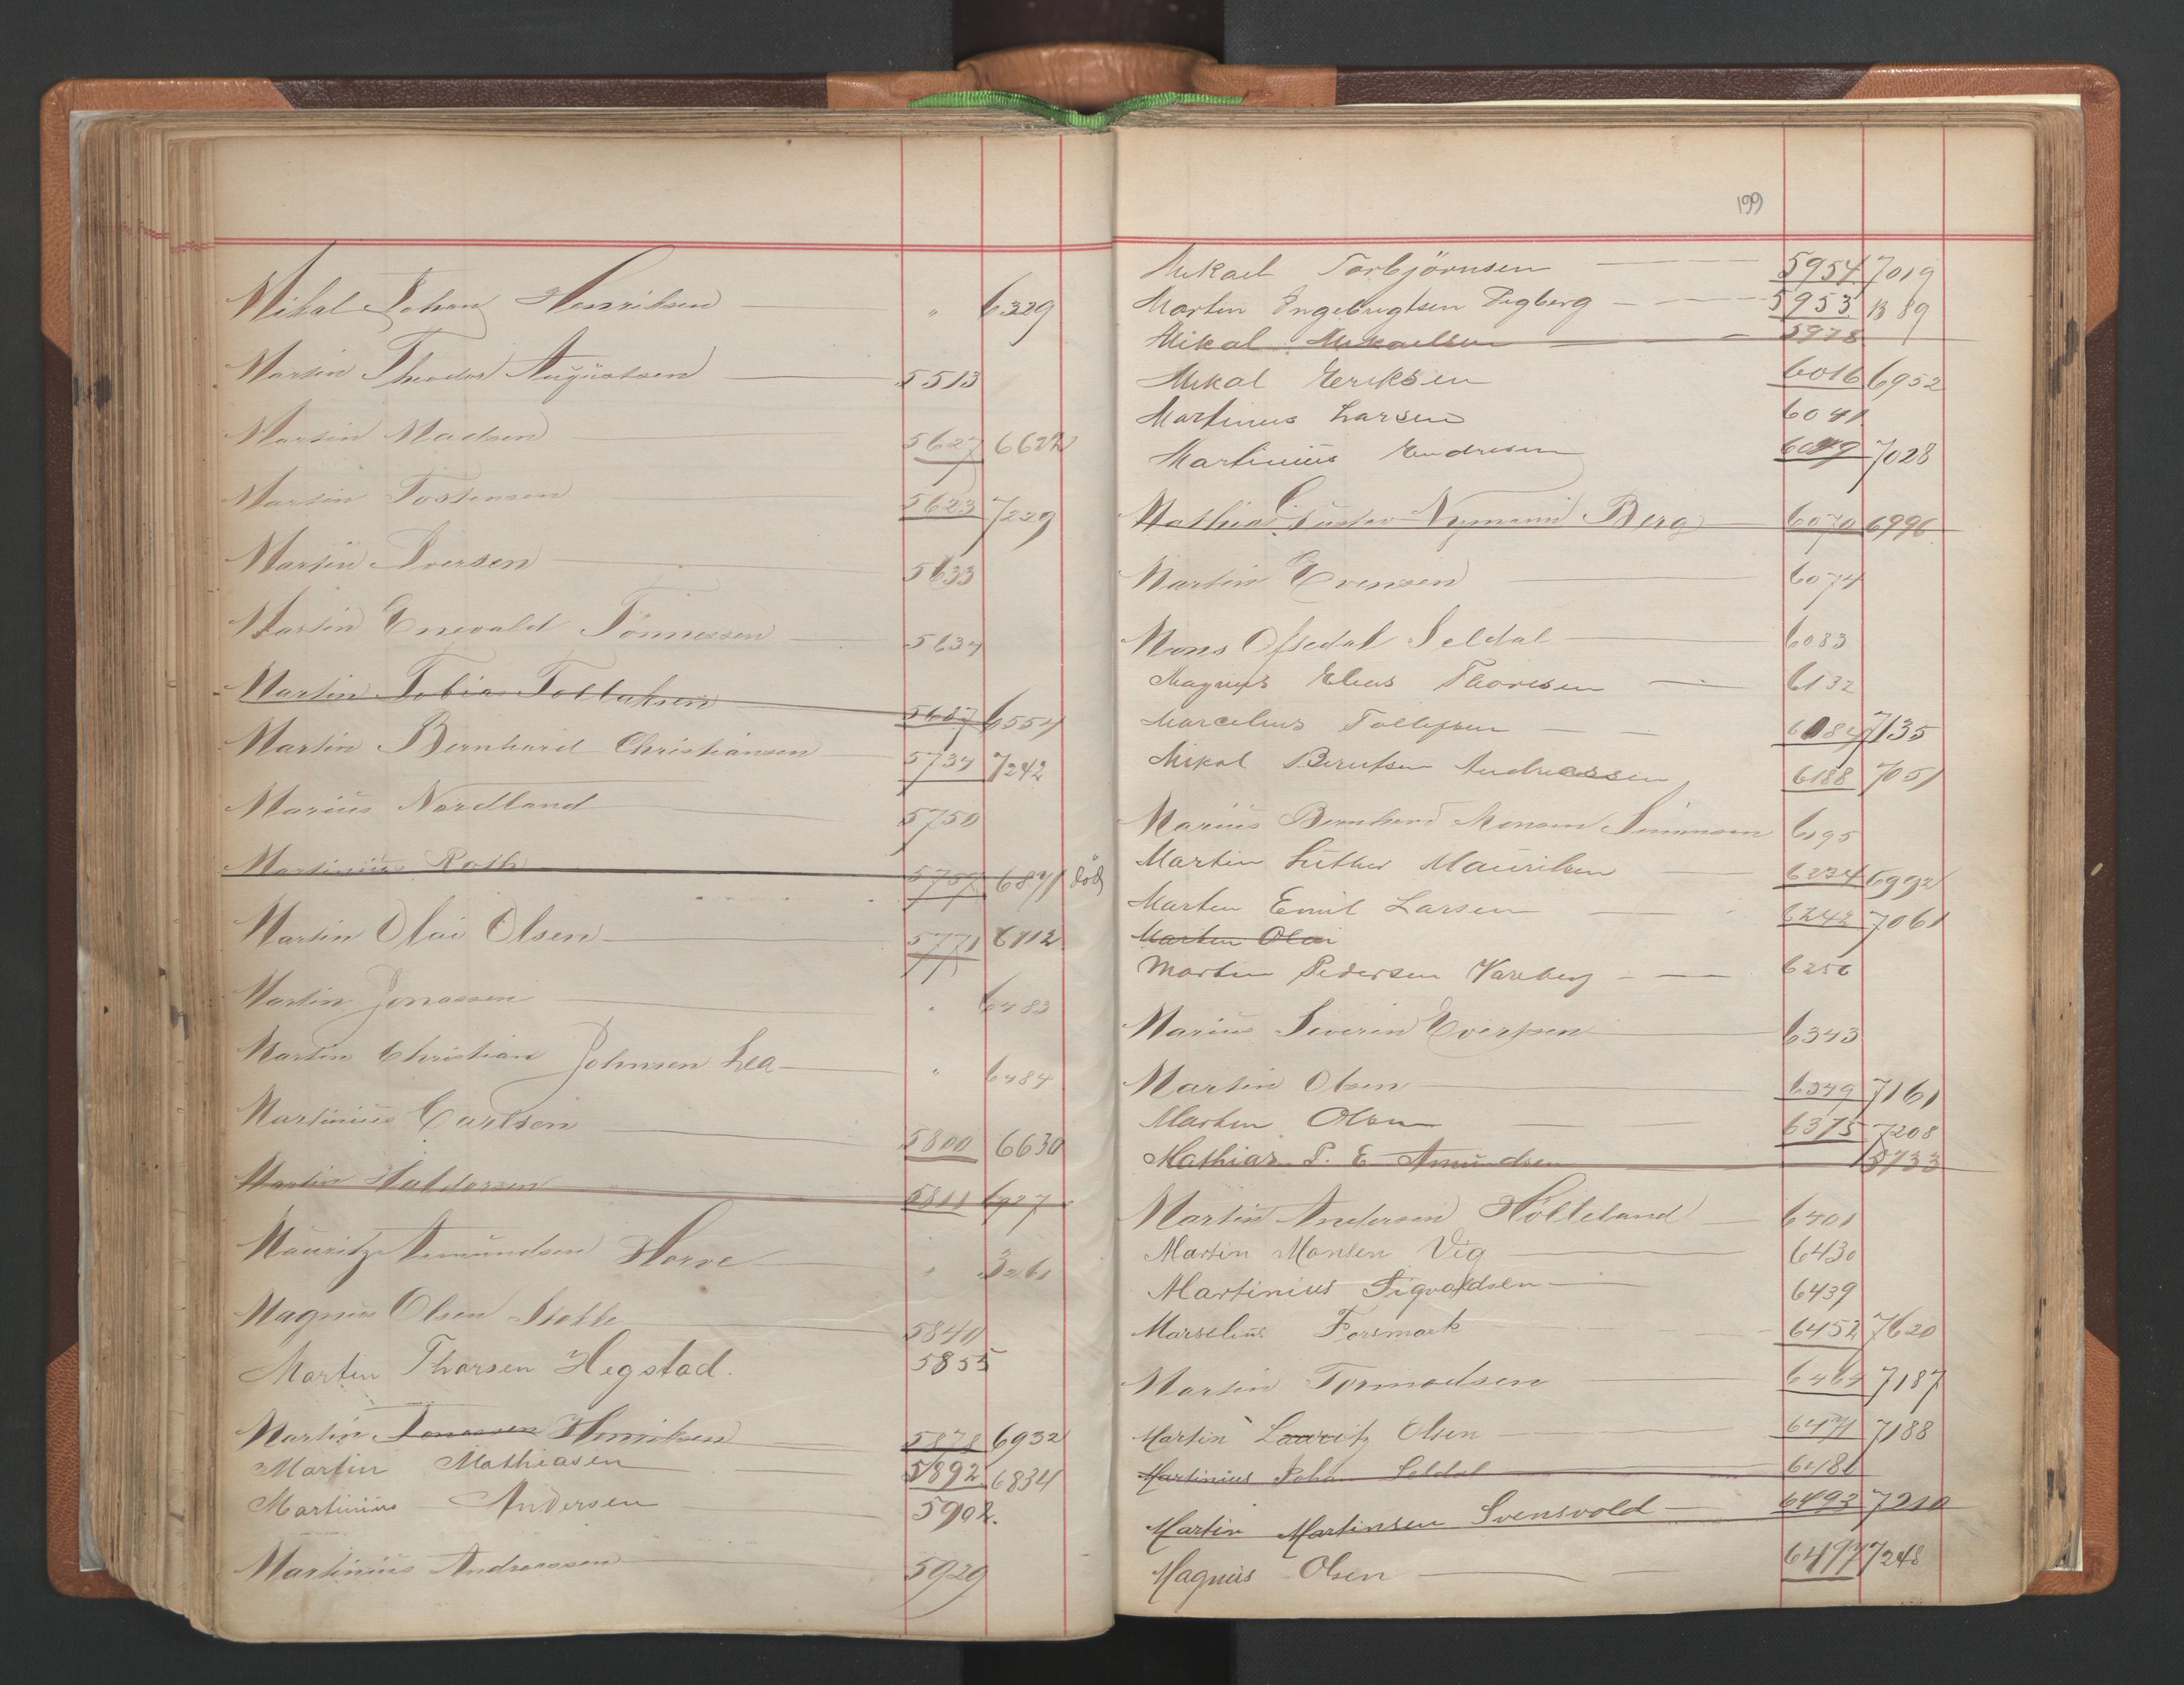 Mikal Johan Henriksen " 6329
Martin Theodor Augustsen 5513
Martin Madsen 5627 6622
Martin Tostensen 5623 7229
Martin Iversen 5633
Martin Enevald Tönnessen 5634
Martin Tobias Tollaksen 5687 6554
Martin Bernhard Christiansen 5734 7242
Marius Nordland 5750
Martinius Roth 5757 6871 död
Martin Olai Olsen 5771 6712
Martin Jonassen " 6483
Martin Christian Johnsen Lea " 6484
Martinius Carlsen 5800 6630
Martin Haldorsen 5811 6927
Mauritz Amundsen Horve " 3261
Magnus Olsen Stokke 5840
Martin Tharsen Hegstad. 5855
Martin Jonassen Henriksen 5878 6932
Martin Mathiasen 5892 6834
Martinius Andersen 5902.
Martinius Andreassen 5929
199
Mikael Torbjörnsen 5954 7019
Martin Engebrigtsen Digberg 5953 13 89
Mikal Mikaelsen 5978
Mikal Eriksen 6016 6952
Martinus Larsen 6041
Martinius Endresen 6049 7028
Mathias Gustav Nymann Berg 6070 6996
Martin Evensen 6074
Mons Ofsedal Seldal 6083
Magnus Elias Thorsen 6132
Marcelius Tollefsen 6184 7135
Mikal Berntsen Andreassen 6188 7051
Marius Bernhard Monsen Simonsen 6195
Martin Luther Mauritsen 6234 6992
Martin Emil Larsen 6242 7061
Martin Olai
Martin Pedersen Vareberg 6256
Marius Severin Evertsen 6343
Martin Olsen 6349 7161
Martin Olsen 6375 7208
Mathias P. E Amundsen 5733
Martin Andersen Hölleland 6401
Martin Monsen Vig 6430
Martinius Sigvaldsen 6439
Marselius Forsmark 6452 7620
Martin Tormodsen 6464 7187
Martin Lauritz Olsen 6471 7188
Martinius Joha Seldal 6486
Martin Martinsen Svensvold 6493 7210
Magnus Olsen 6497 7248